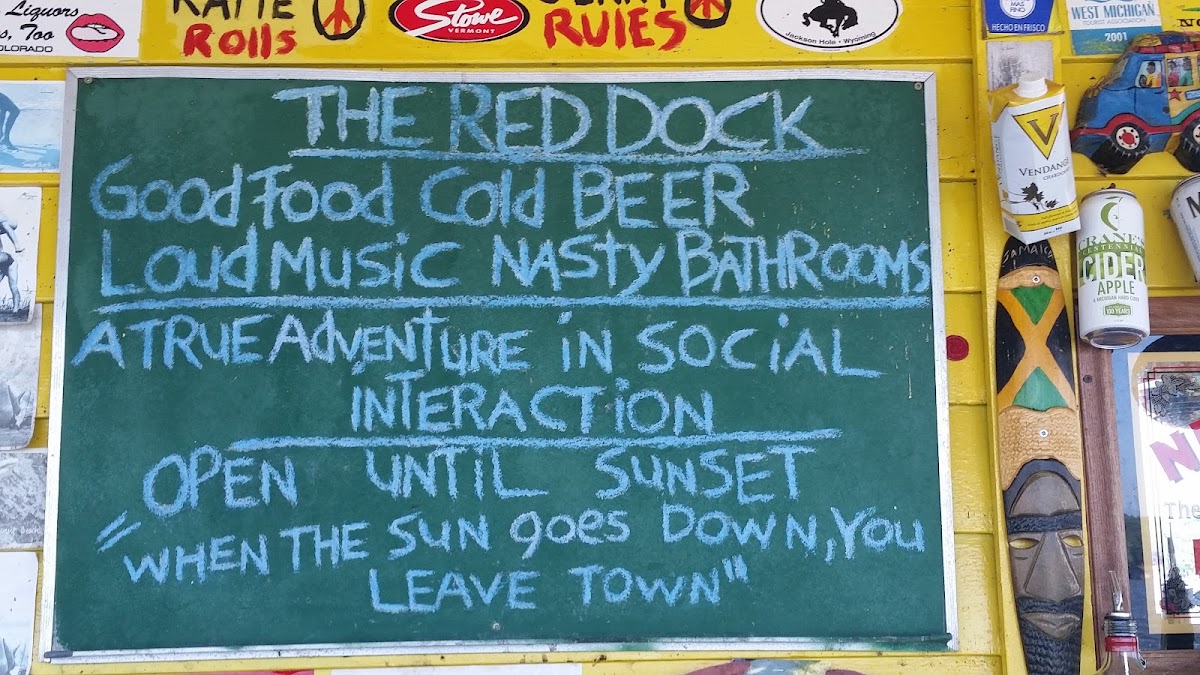 Liquors
s, Too
COLORADO
KATIE
Rolls
Stowe
VERMONT
RULES
Jackson Hole • Wyoming
MAS FINO
HECHO EN FRISCO
WEST MICHIGAN
TOURIST ASSOCIATION
2001
THE RED DOCK
Good Food Cold BEER
Loud Music NASty BATHROOMS
A TRUE AdVENTURE iN SOCiAL
INTERACTiON
OPEN UNTiL SUNSET
"WHEN THE SUN goes DOWN, YOU
LEAVE TOWN"
VENDANGE
CHARDONNAY
JAMAICA
CRANE'S
CENTENNIAL
CIDER
APPLE
A MICHIGAN HARD CIDER
100 YEARS
N
N
The